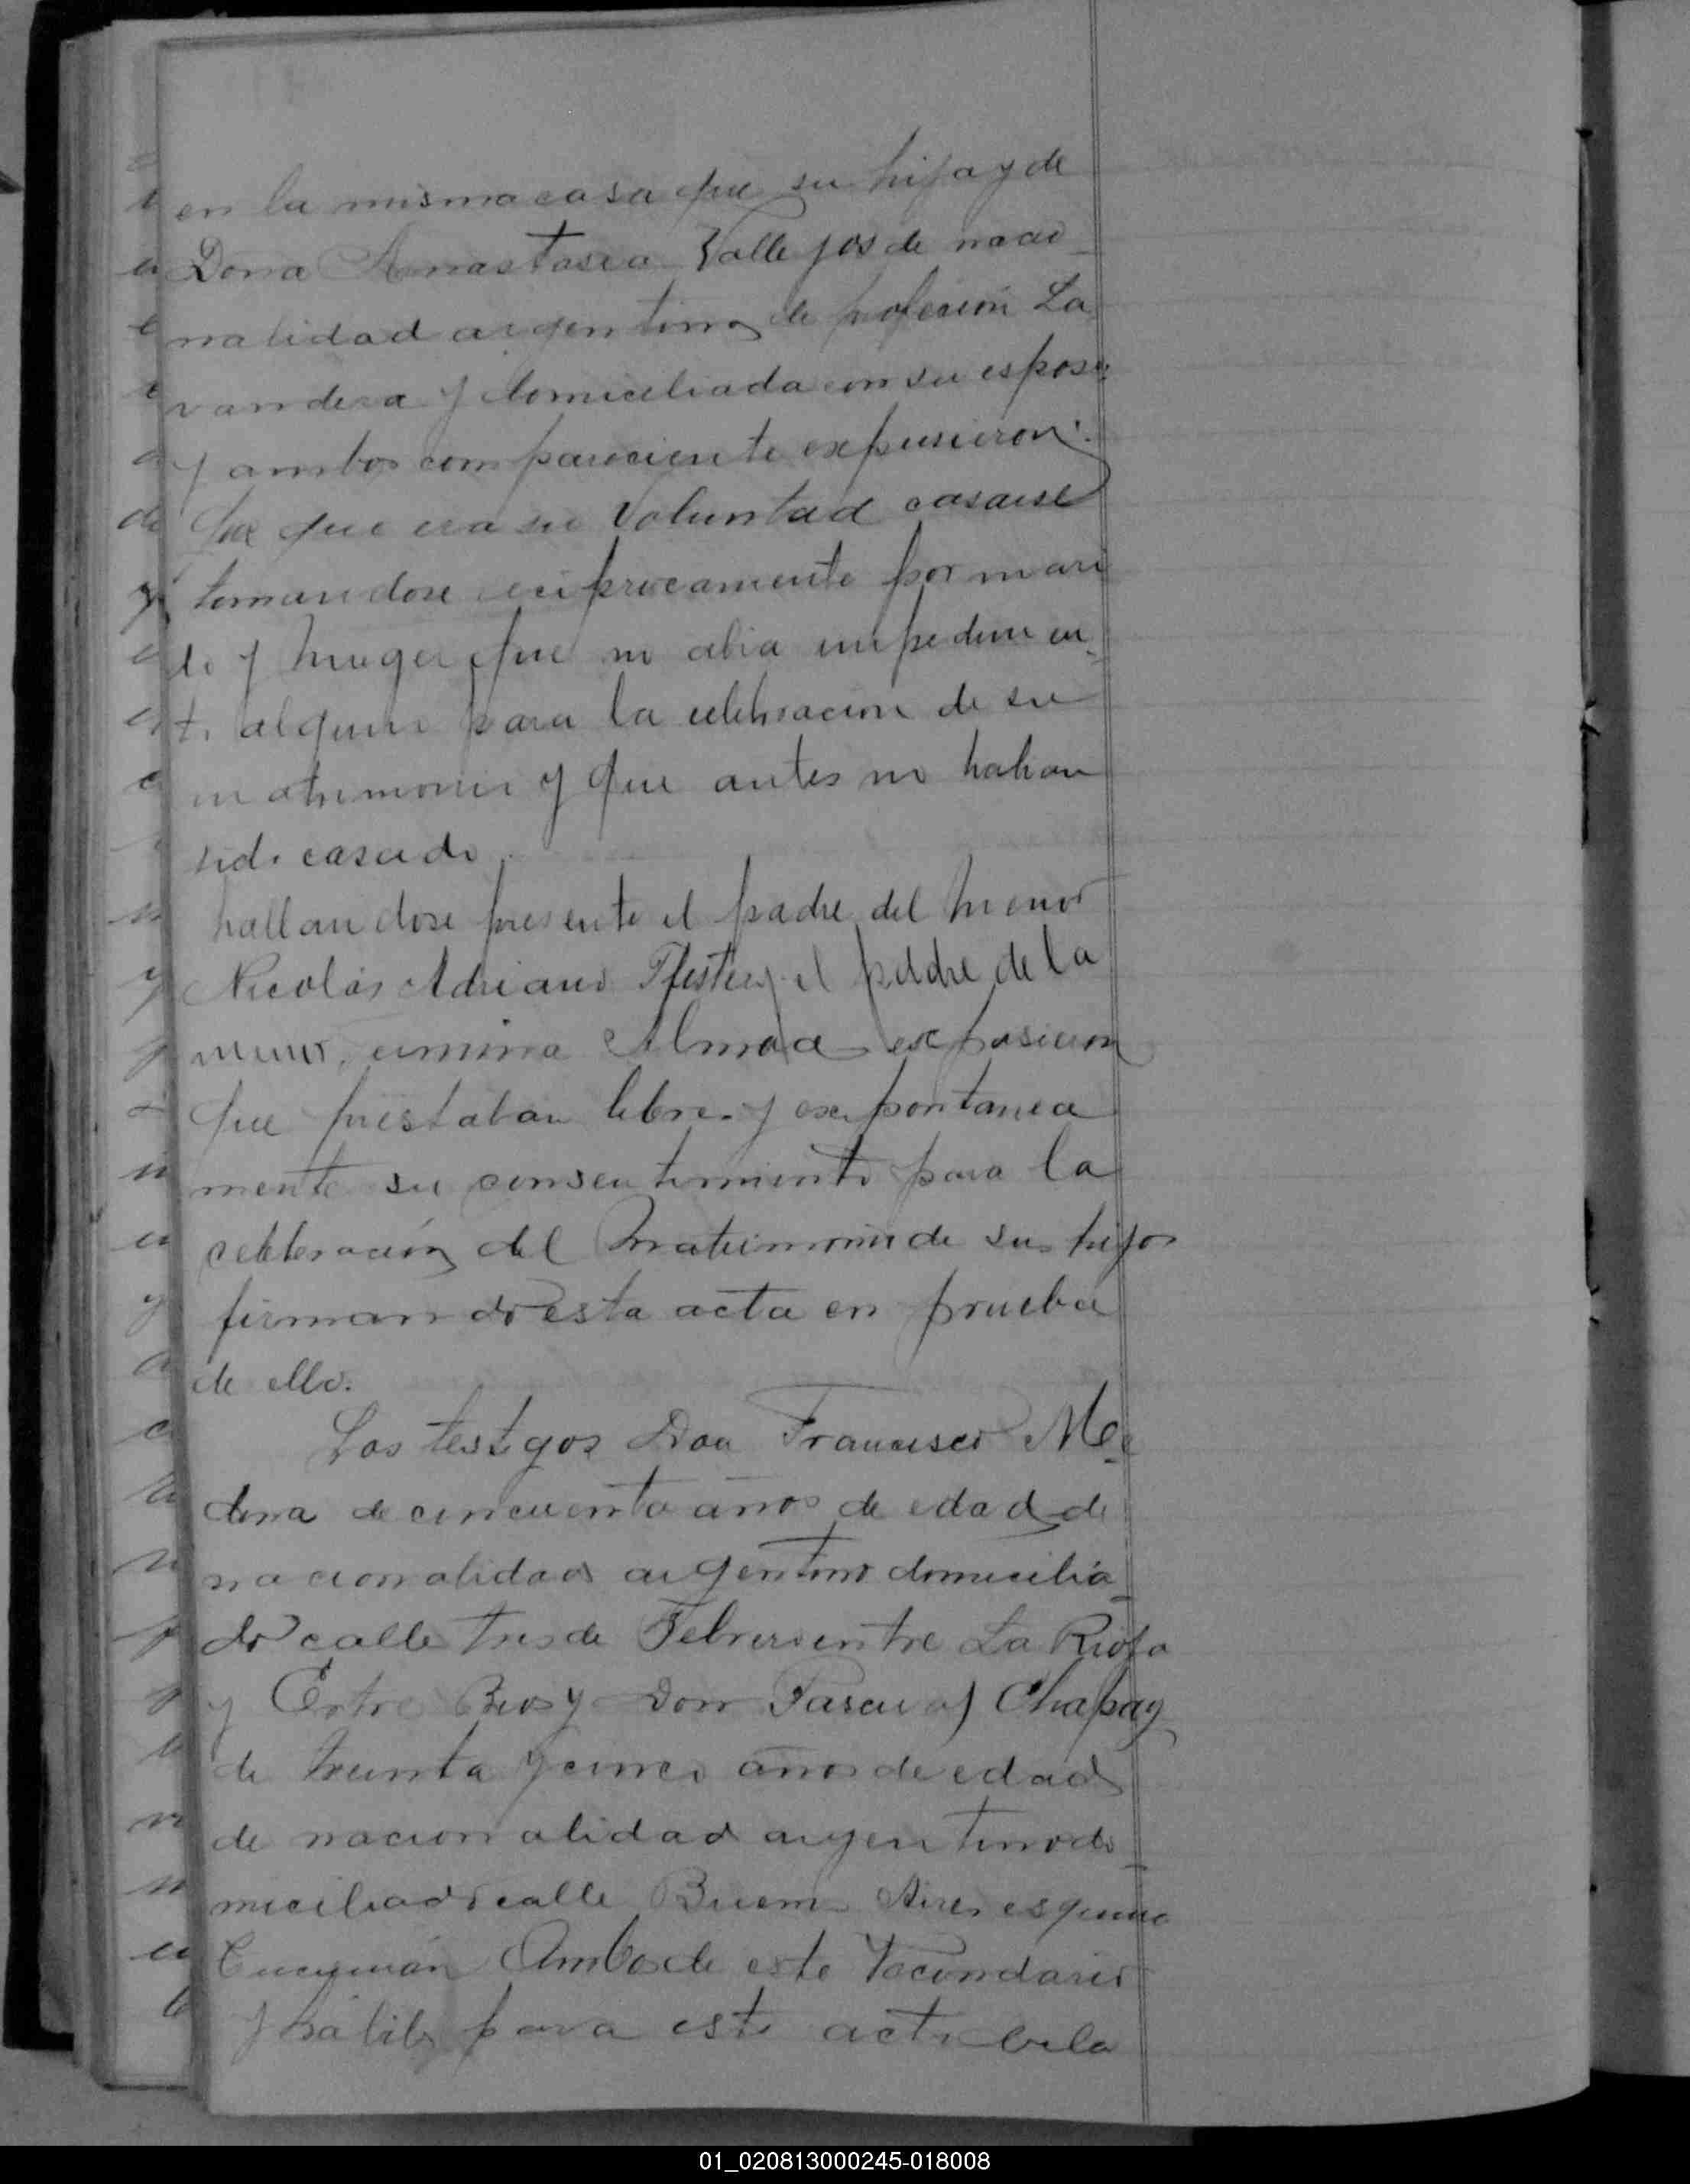 en la misma casa que su hija y de
Dona Anastasia Vallejos de nacio
nalidad argentina de profesion La
vandera y domiciliada con su esposo
y ambos compareciente expusieron:
Que que era su Voluntad casarse
tomandose reciprocamente por mari
do y muger que no abia impedimen
to alguno para la celebracion de su
matrimonio y que antes no habian
sido casado
hallandose presente el padre del menor
Nicolás Adriano y el padre de la
menor Almada exposieron
que prestaban libre y expontanea
mente su consentimiento para la
celebración del Matrimonio de sus hijos
firmando esta acta en prueba
de ello.
Los testigos Don Francisco Me
dina de cincuenta años de edad de
nacionalidad argentino domicilia
do calle tres de Febrero entre La Rioja
y Entre Rios y Don Pascual Chapay
de treinta y cinco años de edad
de nacionalidad argentino do
miciliado calle Buenos Aires esquina
Tucumán Ambos de este
y habiles para este acto
01_020813000245-018008